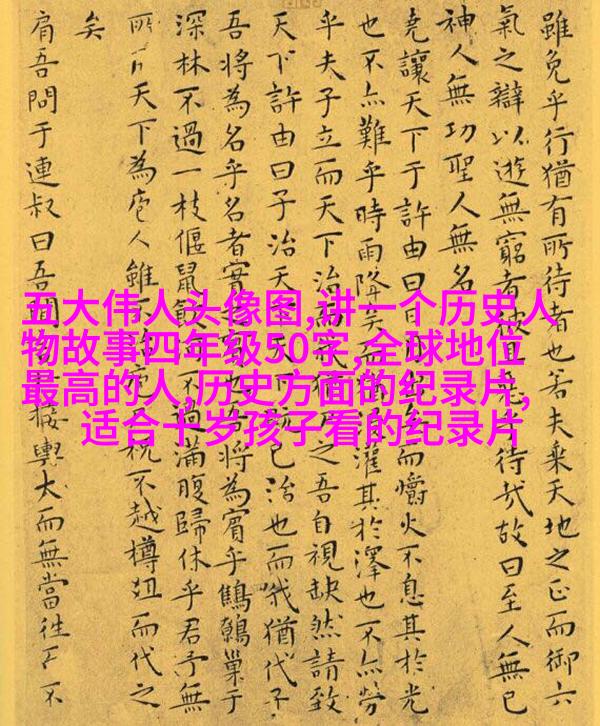 雖免乎行猶有所待者也若夫乘天地之正而御六
氣之辯以遊無窮者彼且待哉故曰至人無已
神人無功聖人無名
堯讓天下于許由曰日月而爝火不息其於光
也不亦難乎時雨降矣而猶灌其於澤也不亦勞
乎夫子立而天下治猶之吾自視缺然請致
天下許由曰子治天下既已治也而我猶代子
吾將為名乎名者實也吾將為賓乎鷦鷯巢于
深林不過一枝偃鼠飲不過滿腹歸休乎君予無
所天下為庖人雖不治庖祝不越樽俎而代之
矣
肩吾問于連叔曰吾聞接輿大而無當往而不
五大伟人头像图,讲一个历史人
物故事四年级50字,全球地位
最高的人,历史方面的纪录片,
适合十岁孩子看的纪录片